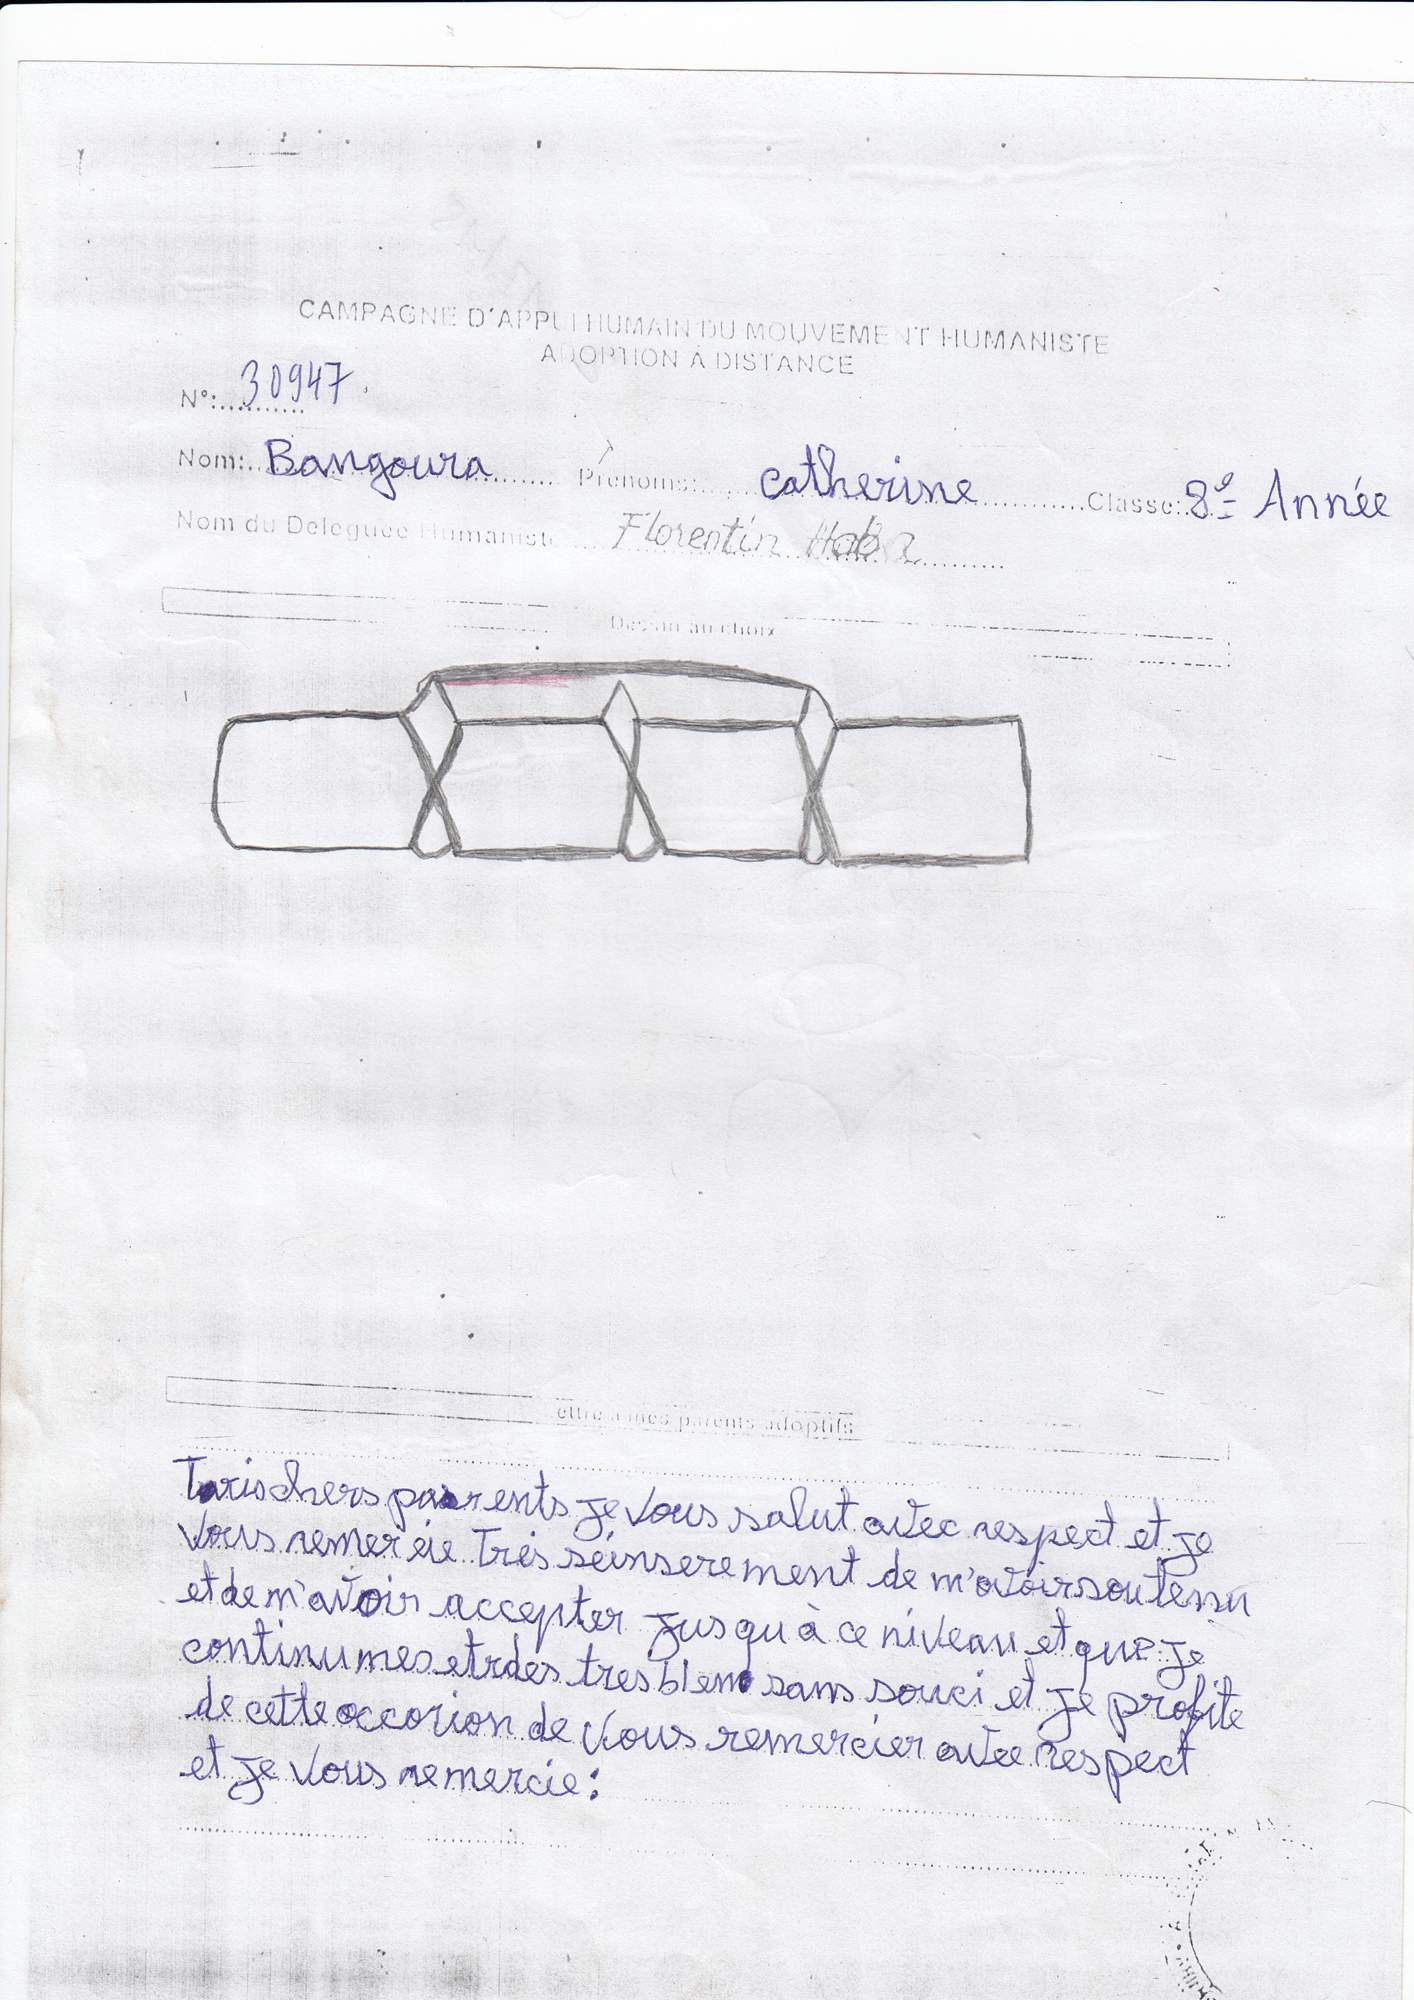 CAMPAGNE D'APPUI HUMAIN DU MOUVEMENT HUMANISTE
ADOPTION À DISTANCE
N°: 30947
Nom: Bangoura Prénoms: catherine Classe: 8e Année
Nom du Déléguée Humaniste Florentin Haba
Dessin au choix
Lettre à mes parents adoptifs
Tris chers parents je vous salut avec respect et je
vous remercie Très seinserement de m'avoir soutenu
et de m'avoir accepter jusqu'à ce niveau et que je
continu mes etrdes tres bien sans souci et je profite
de cette occorion de vous remercier avec respect
et je vous remercie: